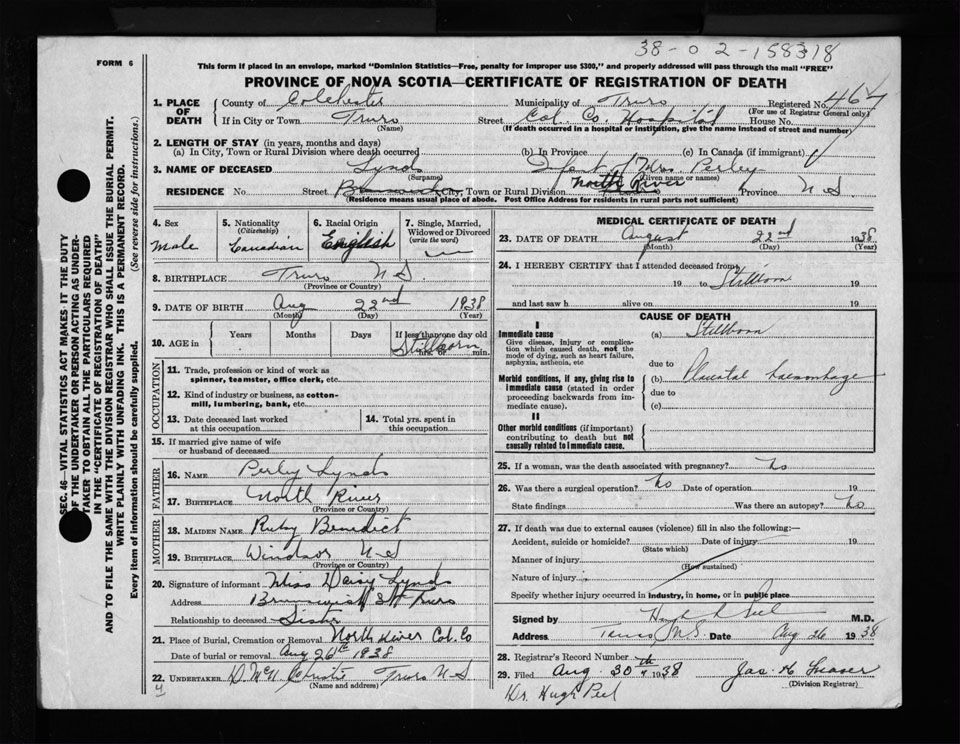 38-02-158318
FORM 6
This form if placed in an envelope, marked "Dominion Statistics—Free, penalty for improper use $300," and properly addressed will pass through the mail "FREE"
PROVINCE OF NOVA SCOTIA—CERTIFICATE OF REGISTRATION OF DEATH
1. PLACE OF DEATH County of Colchester Municipality of Truro Registered No. 464
(For use of Registrar General only)
If in City or Town Truro Street Col. Co. Hospital House No.
(Name) (If death occurred in a hospital or institution, give the name instead of street and number)
2. LENGTH OF STAY (in years, months and days)
(a) In City, Town or Rural Division where death occurred (b) In Province (c) In Canada (if immigrant)
3. NAME OF DECEASED Lynds Infant of Mrs. Perley
(Surname) (Given name or names)
RESIDENCE No. Street Town or Rural Division North River Province N S
(Residence means usual place of abode. Post Office Address for residents in rural parts not sufficient)
4. Sex Male
5. Nationality (Citizenship) Canadian
6. Racial Origin English
7. Single, Married, Widowed or Divorced (write the word)
8. BIRTHPLACE Truro N S
(Province or Country)
9. DATE OF BIRTH Aug 22nd 1938
(Month) (Day) (Year)
10. AGE in Years Months Days If less than one day old
Stillborn hrs. or min.
OCCUPATION
11. Trade, profession or kind of work as spinner, teamster, office clerk, etc.
12. Kind of industry or business, as cotton-mill, lumbering, bank, etc.
13. Date deceased last worked at this occupation
14. Total yrs. spent in this occupation
15. If married give name of wife or husband of deceased
FATHER
16. NAME Perley Lynds
17. BIRTHPLACE North River
(Province or Country)
MOTHER
18. MAIDEN NAME Ruby Benedict
19. BIRTHPLACE Windsor N S
(Province or Country)
20. Signature of informant Miss Daisy Lynds
Address Brunswick St Truro
Relationship to deceased Sister
21. Place of Burial, Cremation or Removal North River Col. Co
Date of burial or removal Aug 26th 1938
22. UNDERTAKER D. McN. Christie Truro N S
(Name and address)
4
MEDICAL CERTIFICATE OF DEATH
23. DATE OF DEATH August 22nd 1938
(Month) (Day) (Year)
24. I HEREBY CERTIFY that I attended deceased from
19 to Stillborn 19
and last saw h alive on 19
CAUSE OF DEATH
I
Immediate cause (a) Stillborn
Give disease, injury or complication which caused death, not the mode of dying, such as heart failure, asphyxia, asthenia, etc
due to
Morbid conditions, if any, giving rise to immediate cause (stated in order proceeding backwards from immediate cause). (b) Placental haemorrhage
due to
(c)
II
Other morbid conditions (if important) contributing to death but not causally related to immediate cause.
25. If a woman, was the death associated with pregnancy? No
26. Was there a surgical operation? No Date of operation 19
State findings Was there an autopsy? No
27. If death was due to external causes (violence) fill in also the following:—
Accident, suicide or homicide? Date of injury 19
(State which)
Manner of injury
(How sustained)
Nature of injury
Specify whether injury occurred in industry, in home, or in public place
Signed by Hugh R Peel M.D.
Address Truro N.S. Date Aug 26 1938
28. Registrar's Record Number
29. Filed Aug. 30th 1938 Jas. H Fraser
(Division Registrar)
Dr. Hugh Peel
SEC. 46—VITAL STATISTICS ACT MAKES IT THE DUTY
OF THE UNDERTAKER OR PERSON ACTING AS UNDER-
TAKER TO OBTAIN ALL THE PARTICULARS REQUIRED
IN THE "CERTIFICATE OF REGISTRATION OF DEATH"
AND TO FILE THE SAME WITH THE DIVISION REGISTRAR WHO SHALL ISSUE THE BURIAL PERMIT.
WRITE PLAINLY WITH UNFADING INK. THIS IS A PERMANENT RECORD.
Every item of information should be carefully supplied. (See reverse side for instructions.)